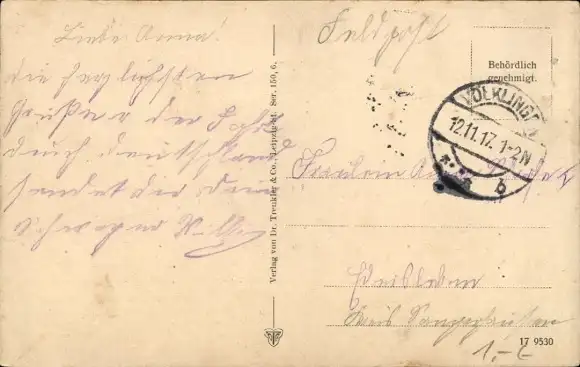 Liebe Anna!
die herzlichsten
Grüße v der Fahrt
durch Deutschland
sendet dir dein
Schwager Willy
Verlag von Dr. Trenkler & Co., Leipzig. Ser. 150, 6.
Feldpost
Behördlich
genehmigt.
VÖLKLINGEN
12.11.17. 1-2N
b
Fräulein
Kreis Sangerhausen
17 9530
1,-